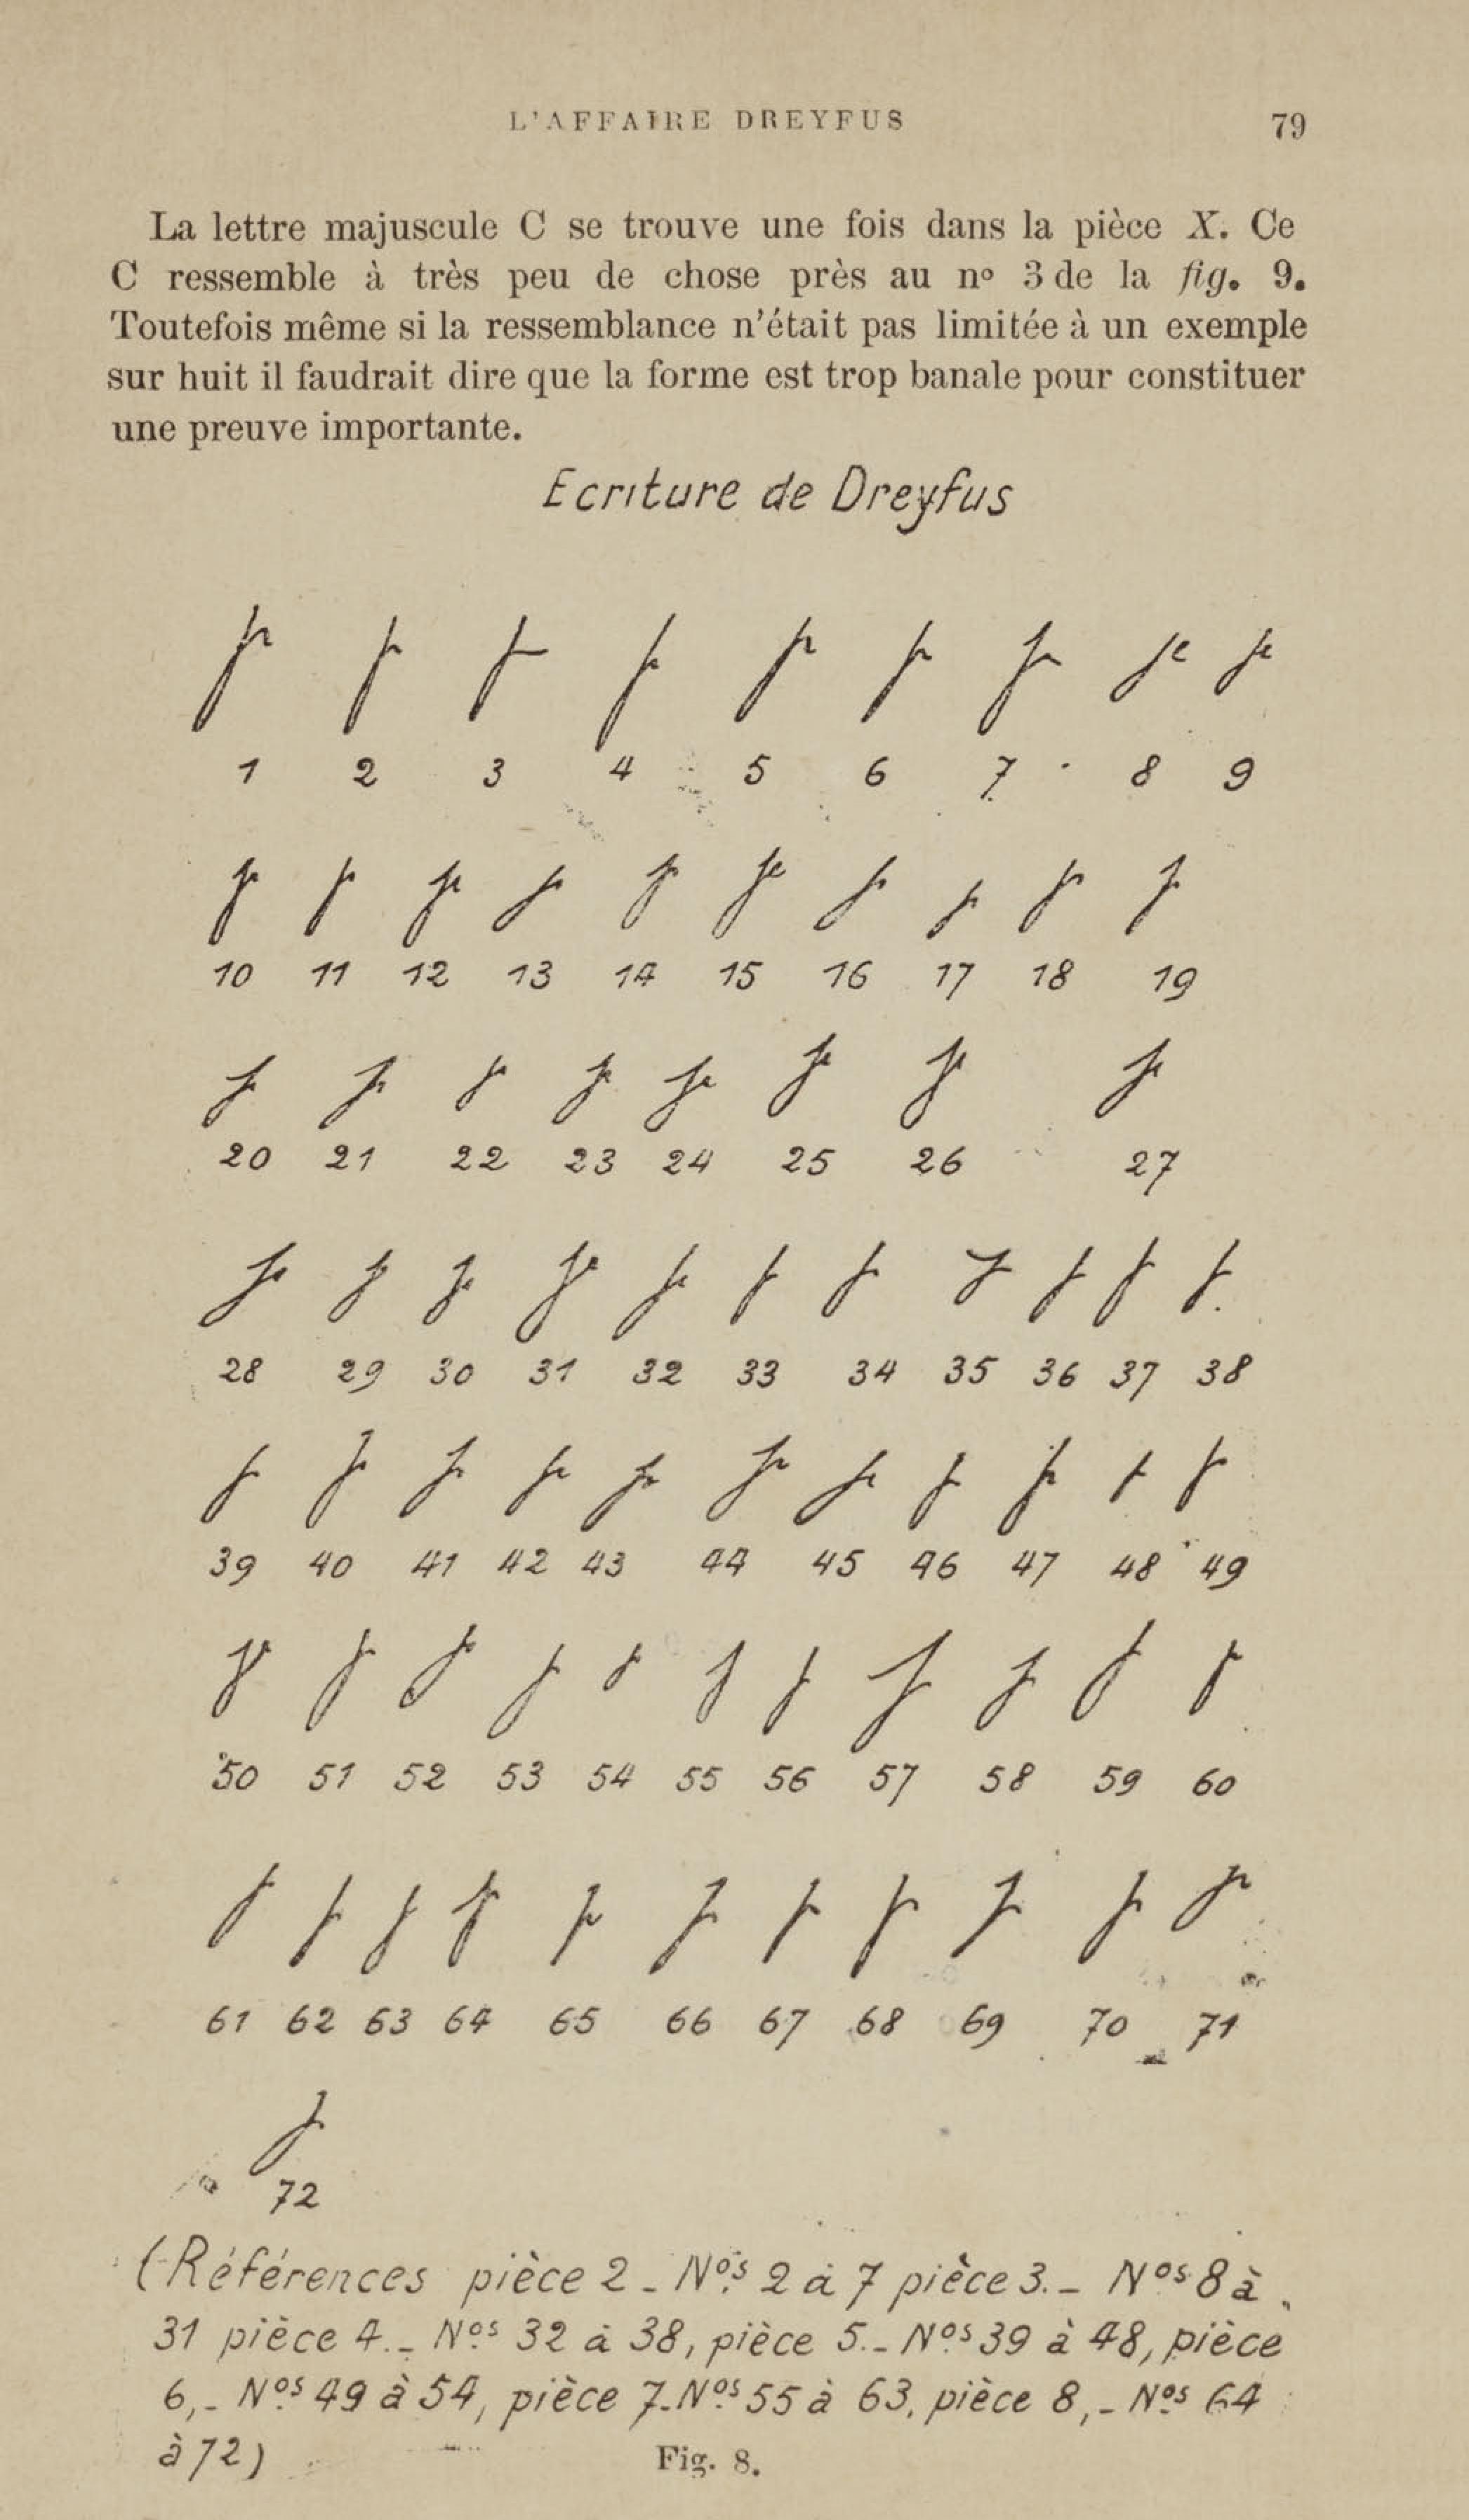 L'AFFAIRE DREYFUS 79
La lettre majuscule C se trouve une fois dans la pièce X. Ce
C ressemble à très peu de chose près au nº 3 de la fig. 9.
Toutefois même si la ressemblance n'était pas limitée à un exemple
sur huit il faudrait dire que la forme est trop banale pour constituer
une preuve importante.
Ecriture de Dreyfus
1 2 3 4 5 6 7 8 9
10 11 12 13 14 15 16 17 18 19
20 21 22 23 24 25 26 27
28 29 30 31 32 33 34 35 36 37 38
39 40 41 42 43 44 45 46 47 48 49
50 51 52 53 54 55 56 57 58 59 60
61 62 63 64 65 66 67 68 69 70 71
72
(Références pièce 2 - Nos 2 à 7 pièce 3.- Nos 8 à
31 pièce 4.- Nos 32 à 38, pièce 5.- Nos 39 à 48, pièce
6,- Nos 49 à 54, pièce 7.- Nos 55 à 63, pièce 8,- Nos 64
à 72)
Fig. 8.